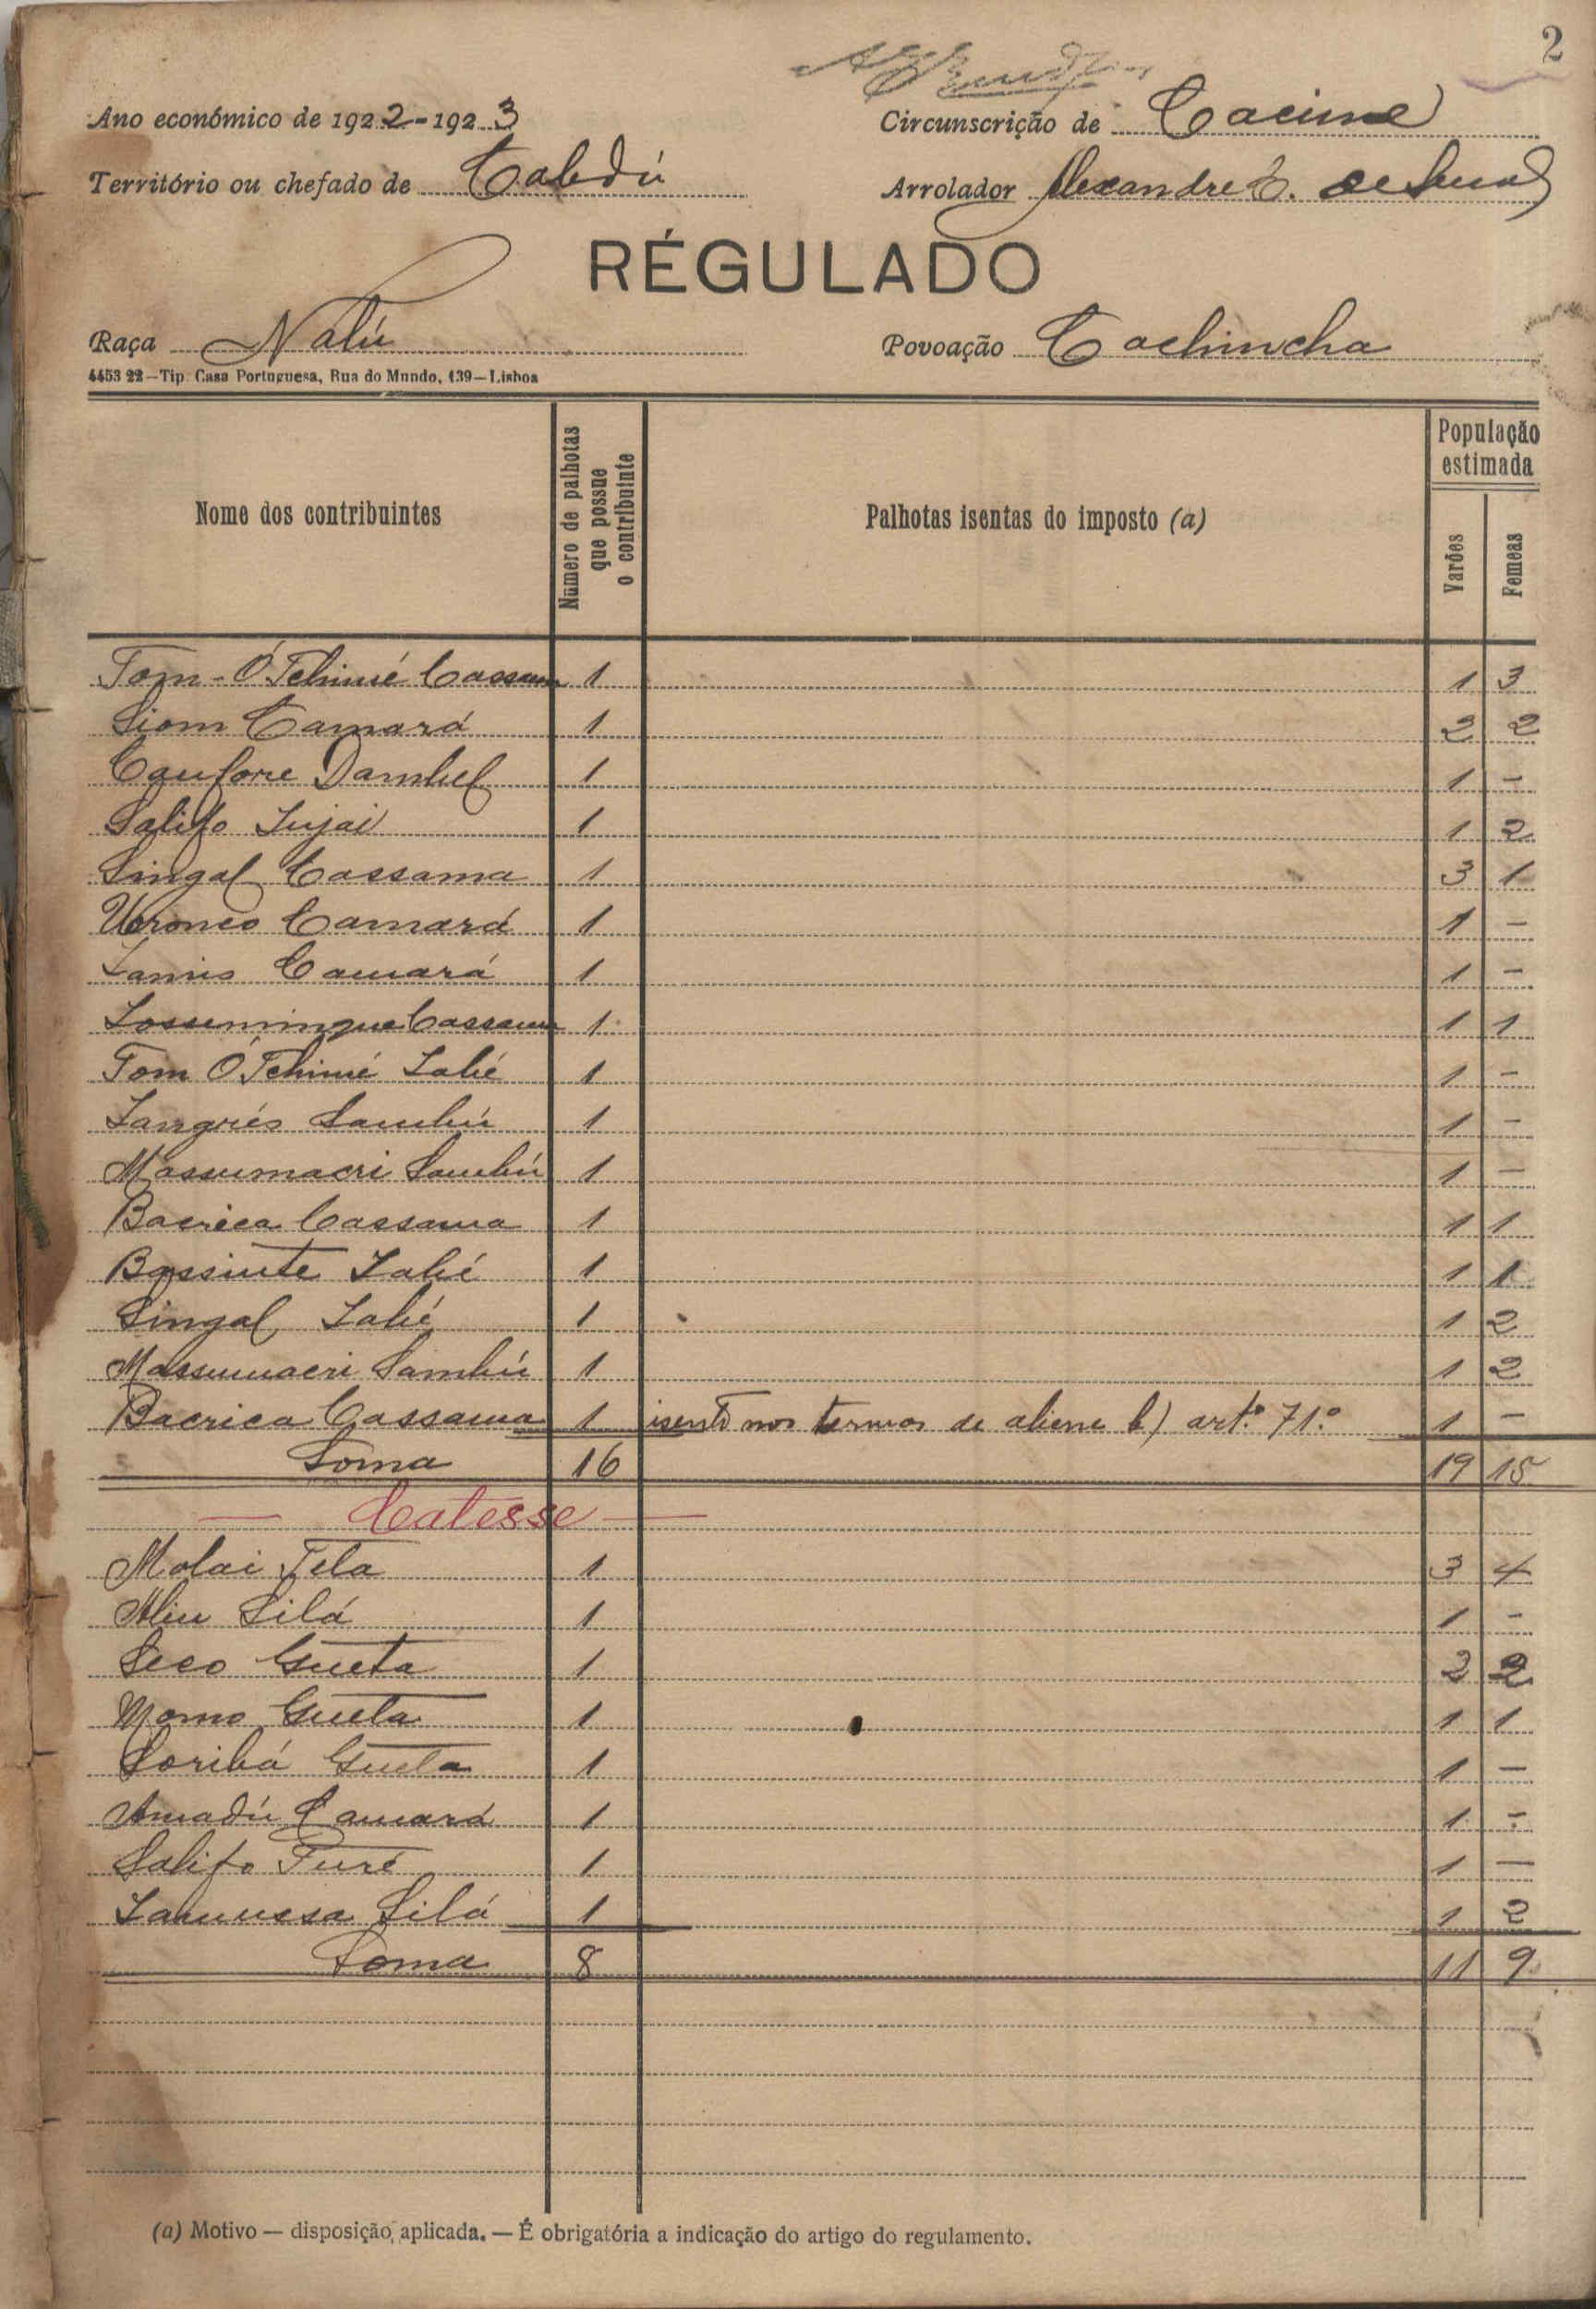 2
Ano económico de 1922-1923
Circunscrição de Cacine
Território ou chefado de Cabedú
Arrolador Alexandre C. de Sena
RÉGULADO
Raça Nalú
Povoação Cachincha
4453 22—Tip. Casa Portuguesa, Rua do Mundo, 139—Lisboa
Nome dos contribuintes
Número de palhotas que possue o contribuinte
Palhotas isentas do imposto (a)
População estimada
Varões
Femeas
Tom-Ó Tchimé Cassama 1 1 3
Siom Camará 1 2 2
Canfore Dambel 1 1 -
Salifo Injai 1 1 2
Singal Cassama 1 3 1
Camará 1 1 -
Lamis Camará 1 1 -
Cassama 1 1 1
Tom Ó Tchimé Sabé 1 1 -
Sambú 1 1 -
Massumacri Sambú 1 1 -
Bacrica Cassama 1 1 1
Bassinte Sabé 1 1 1
Singal Sabé 1 1 2
Massumacri Sambú 1 1 2
Bacrica Cassama 1 isento nos termos de aliene b) art.º 71.º 1 -
Soma 16 19 15
— Catesse —
Molai Tela 1 3 4
Aliu Silá 1 1 -
Seco Gueta 1 2 2
Momo Gueta 1 1 1
Soribá Gueta 1 1 —
Amadú Camará 1 1 -
Salifo Turé 1 1 —
Silá 1 1 2
Soma 8 11 9
(a) Motivo — disposição aplicada. — É obrigatória a indicação do artigo do regulamento.